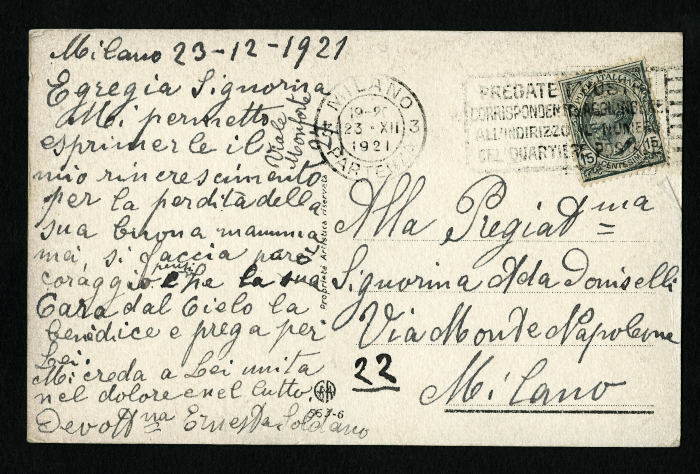 Milano 23-12-1921
Egregia Signorina
Mi permetto
esprimerle il
mio rincrescimento
per la perdita della
sua buona mamma
ma, si faccia pure
coraggio pensi che la sua
Cara dal Cielo la
benedice e prega per
Lei.
Mi creda a Lei unita
nel dolore e nel lutto.
Devott na Ernesta Soldano
Viale
Monforte
Proprietà Artistica riservata
967-6
MILANO
19-20
23 - XII
1921
PARTENZA
3
PREGATE
CORRISPONDENTI AGGIUNGERE
ALL'INDIRIZZO IL NUMERO
DEL QUARTIERE POS
15
15
CENTESIMI
Alla Pregiat ma
Signorina Ada Doniselli
Via Monte Napoleone
22
Milano